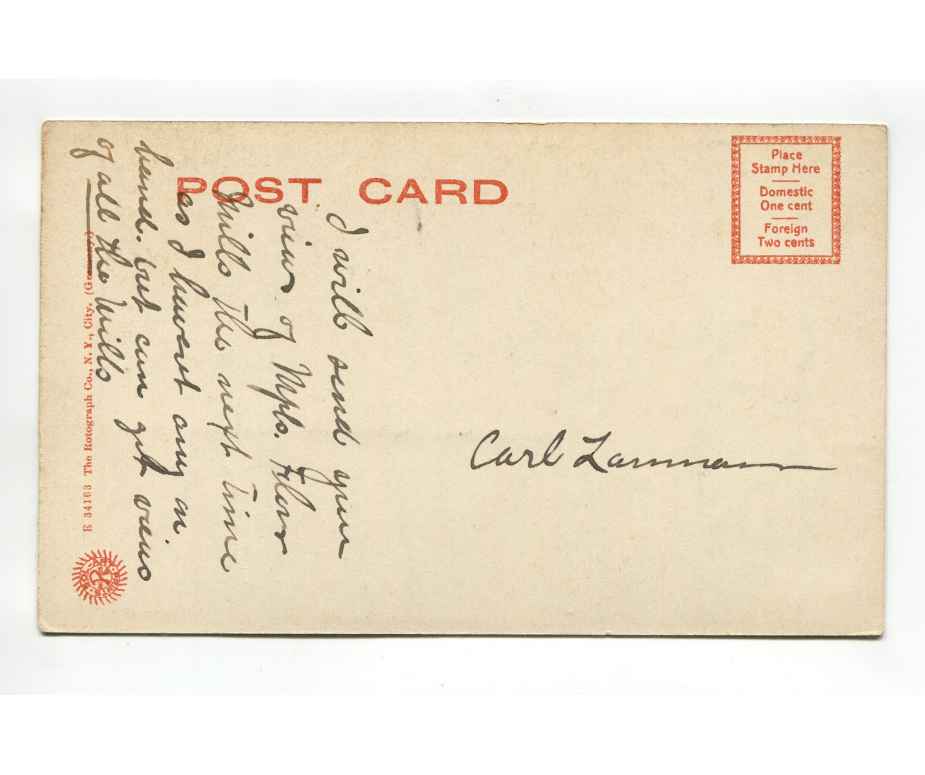 POST CARD
Place
Stamp Here
Domestic
One cent
Foreign
Two cents
I will send you
views of Mpls. Flour
Mills the next time
as I havent any on
hand. but can get views
of all the Mills
Carl Lammann
E 34163 The Rotograph Co., N. Y., City.